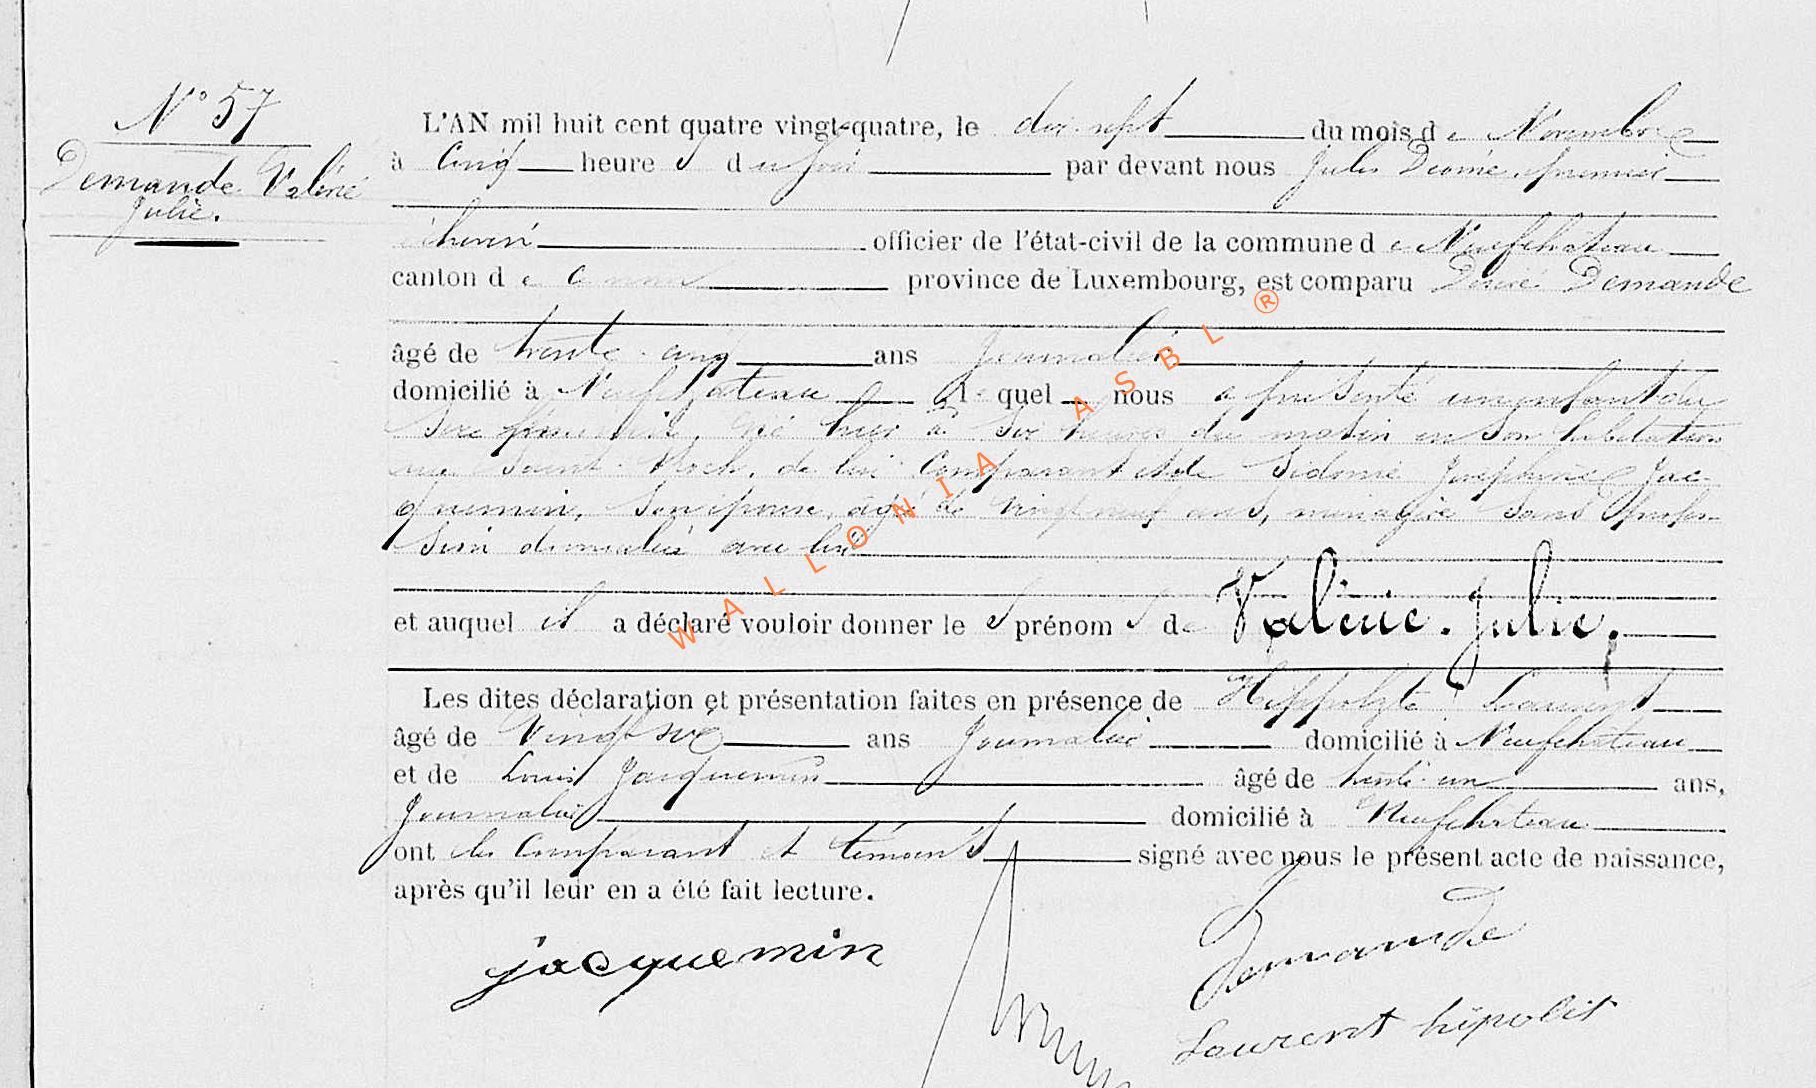 N° 57
Demande Valérie
Julie.
L'AN mil huit cent quatre vingt-quatre, le dix-sept du mois de Novembre
à cinq heures du soir par devant nous Jules premier
échevin officier de l'état-civil de la commune de Neufchâteau
canton de province de Luxembourg, est comparu Désiré Demande
âgé de trente-cinq ans journalier
domicilié à Neufchâteau Lequel nous a présenté un enfant du
sexe féminin, né hier à six heures du matin en son habitation
rue Saint-Roch, de lui comparant et de Sidonie Joséphine Jac-
quemin, son épouse, âgée de vingt neuf ans, ménagère sans profes-
sion domiciliée avec lui
et auquel il a déclaré vouloir donner les prénoms de Valérie-Julie,
Les dites déclaration et présentation faites en présence de Hippolyte Laurent
âgé de vingt six ans journalier domicilié à Neufchâteau
et de Louis Jacquemin âgé de trente-un ans,
journalier domicilié à Neufchâteau
ont les comparant et témoins signé avec nous le présent acte de naissance,
après qu'il leur en a été fait lecture.
jacquemin
Demande
Laurent hipolit
WALLONIA ASBL ®